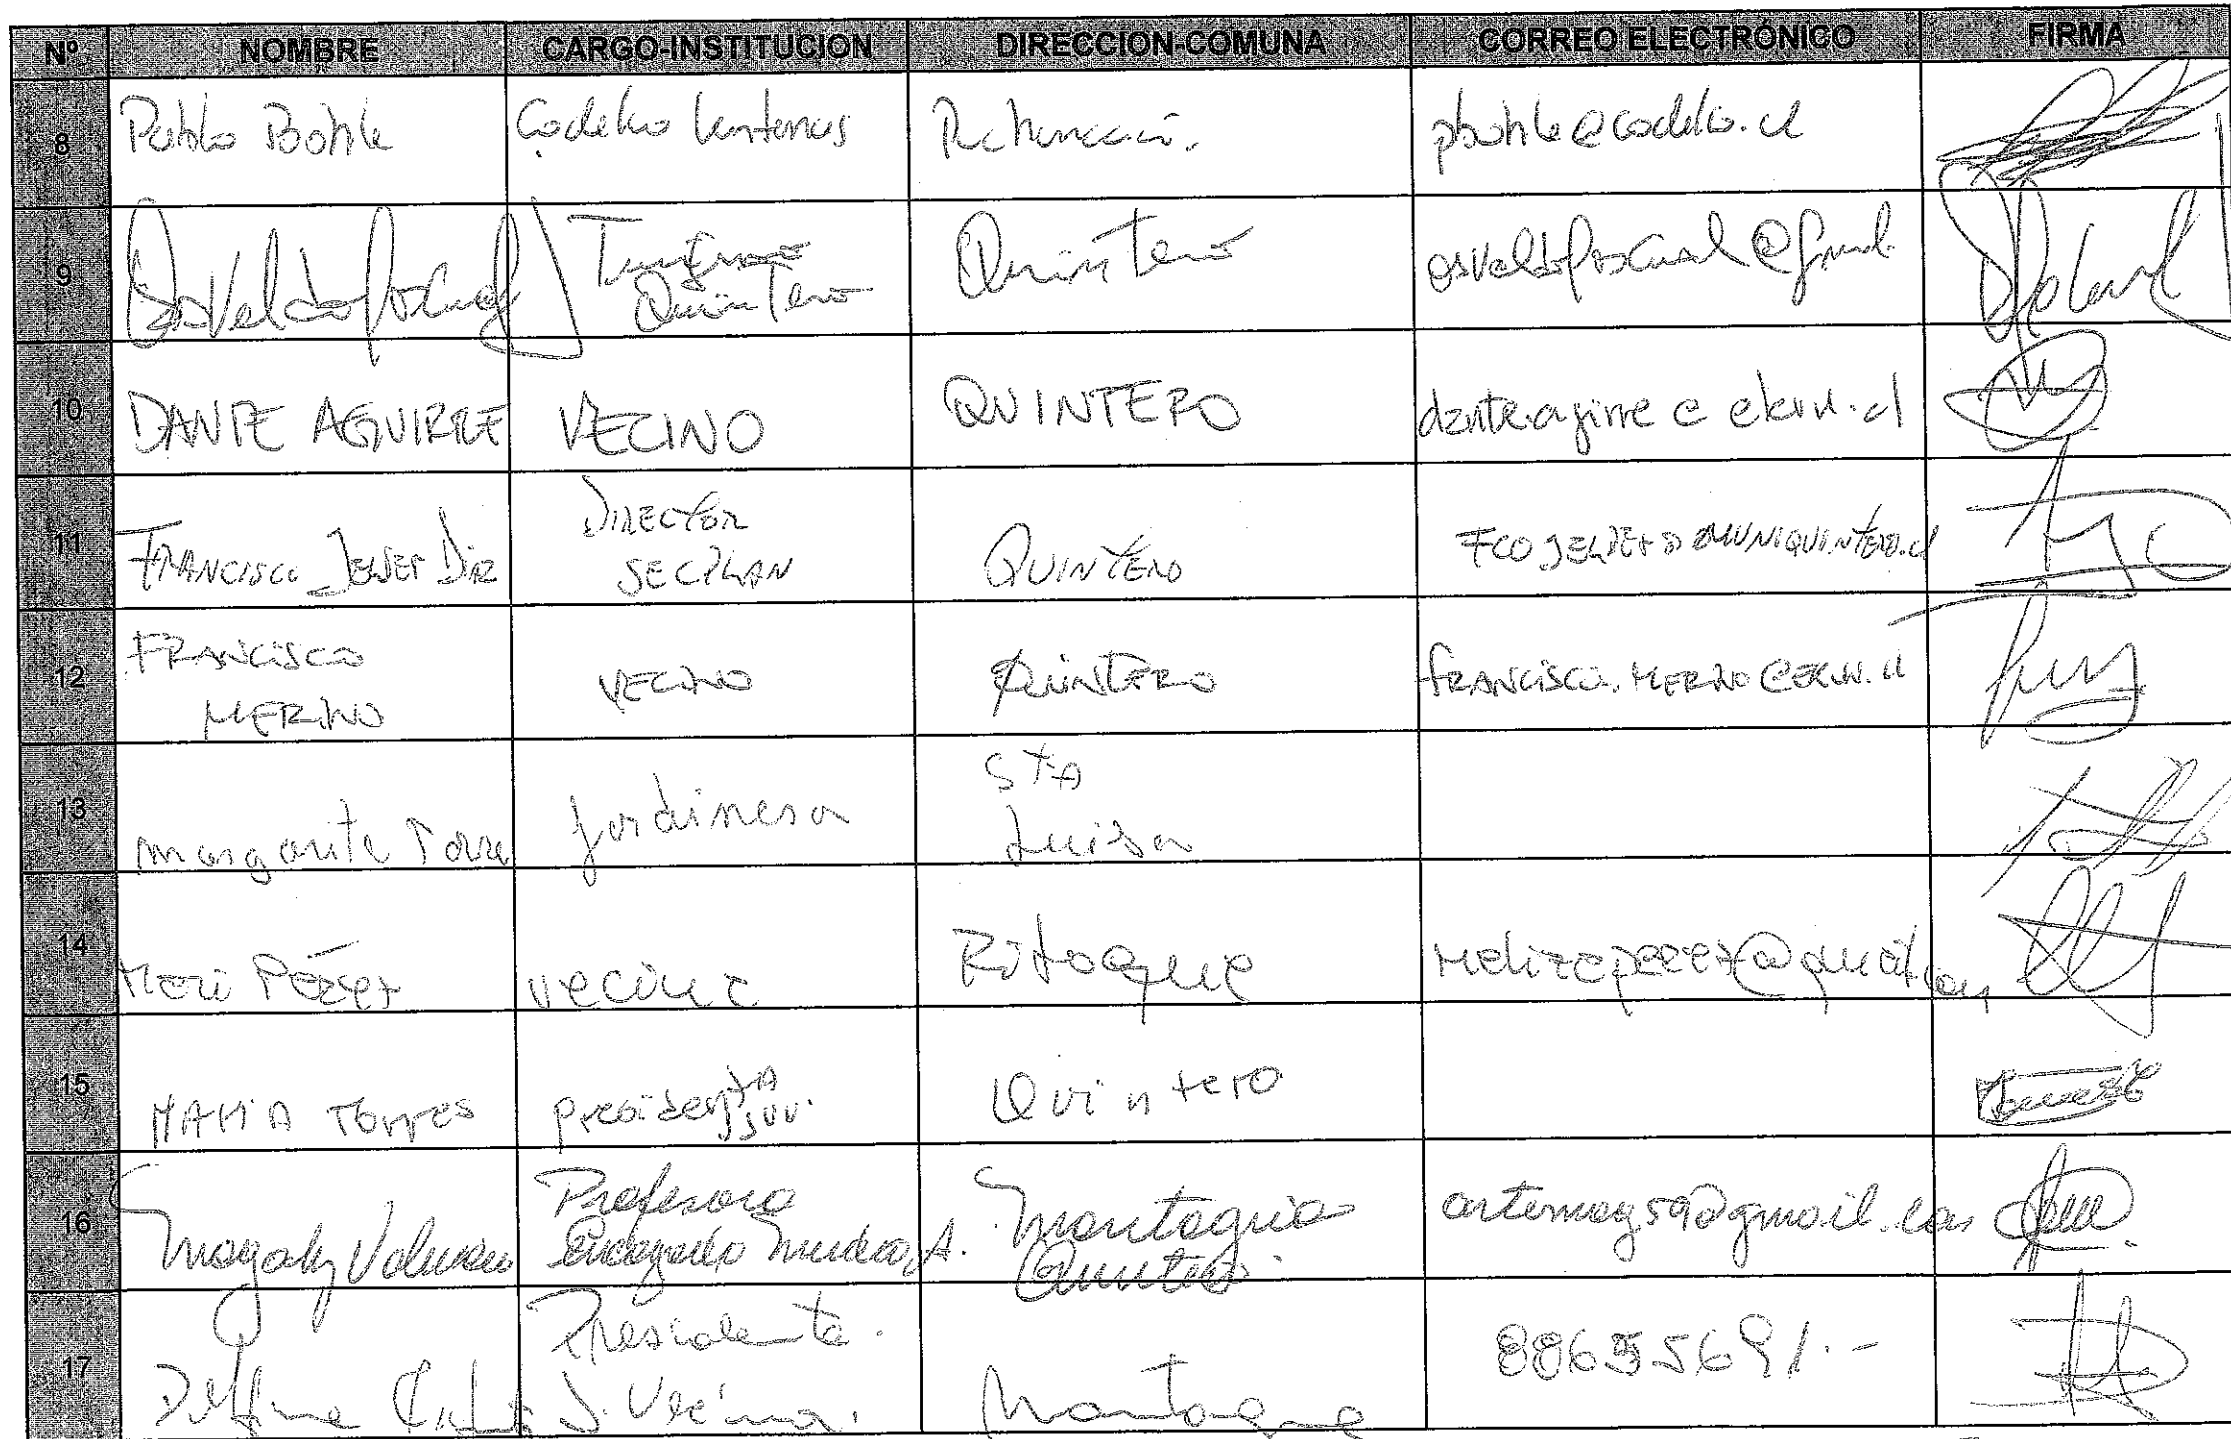 Nº NOMBRE CARGO-INSTITUCION DIRECCION-COMUNA CORREO ELECTRÓNICO FIRMA
8 Pablo Bohle Codelco Ventanas Puchuncaví. pbohle@codelco.cl
9 Osvaldo Pascual Quintero Quintero osvaldopascual@gmail.
10 DANTE AGUIRRE VECINO QUINTERO dante.aguirre@ekun.cl
11 FRANCISCO DIRECTOR SECPLAN QUINTERO
12 FRANCISCO MERINO VECINO QUINTERO FRANCISCO.MERINO@EKUN.cl
13 margarita Torre jardinera STA Luisa
14 Meri Pérez vecina Ritoque
15 MARIA Torres presidenta JJVV. Quintero
16 Magaly Profesora Montagua Quintero artemag59@gmail.com
17 Presidenta J. Vecinos. Montagua 88655691.-